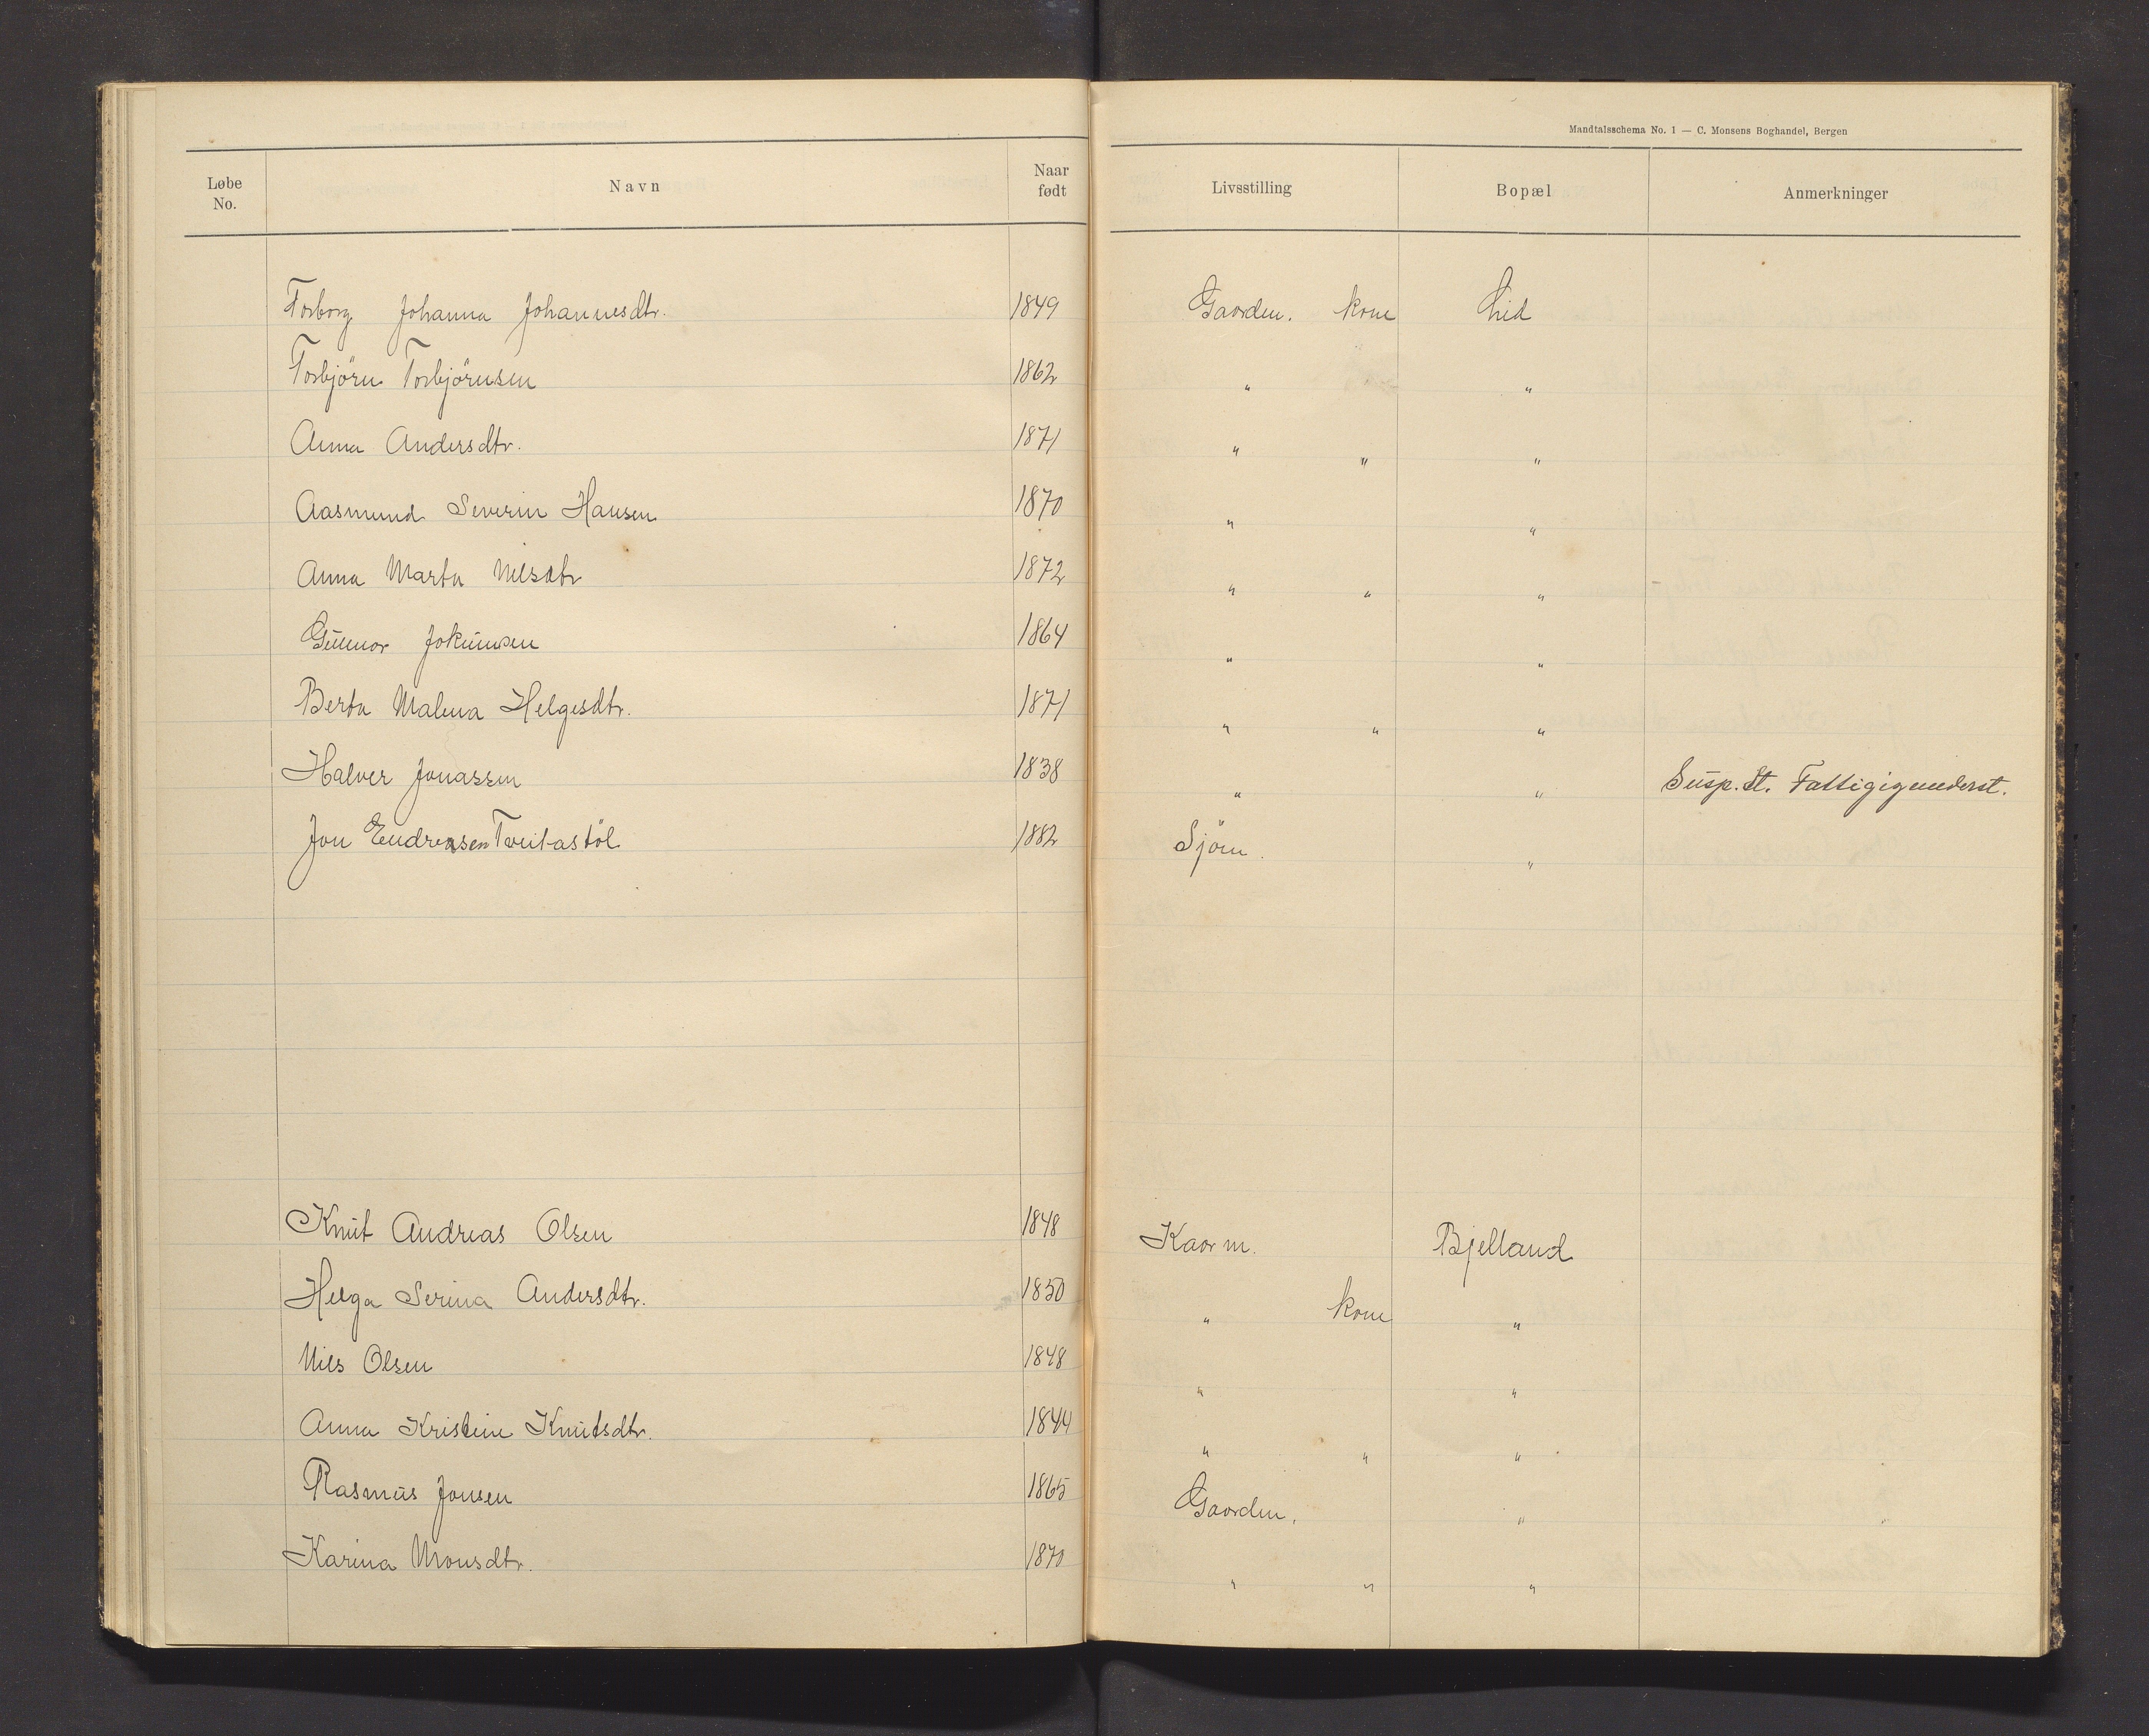 Mandtalsschema No. 1 — C. Monsens Boghandel, Bergen
Løbe No. Navn Naar født Livsstilling Bopæl Anmerkninger
Torborg Johanna Johannesdtr. 1849 Gaarden. kone Lid
Torbjörn Torbjörnsen 1862 " "
Anna Andersdtr. 1871 " " "
Aasmund Severin Hansen 1870 " "
Anna Marta Nilsdtr 1872 " " "
Gunnor Jokumsen 1864 " "
Berta Malena Helgesdtr. 1871 " " "
Halver Jonassen 1838 " " Susp. St.
Jon Endresen Tveitastöl 1882 Sjöm. "
Knut Andreas Olsen 1848 Kaarm. Bjelland
Helga Serina Andersdtr. 1850 " kone "
Nils Olsen 1848 " "
Anna Kristine Knutsdtr. 1844 " " "
Rasmus Jonsen 1865 Gaarden. "
Karina Monsdtr. 1870 " " "